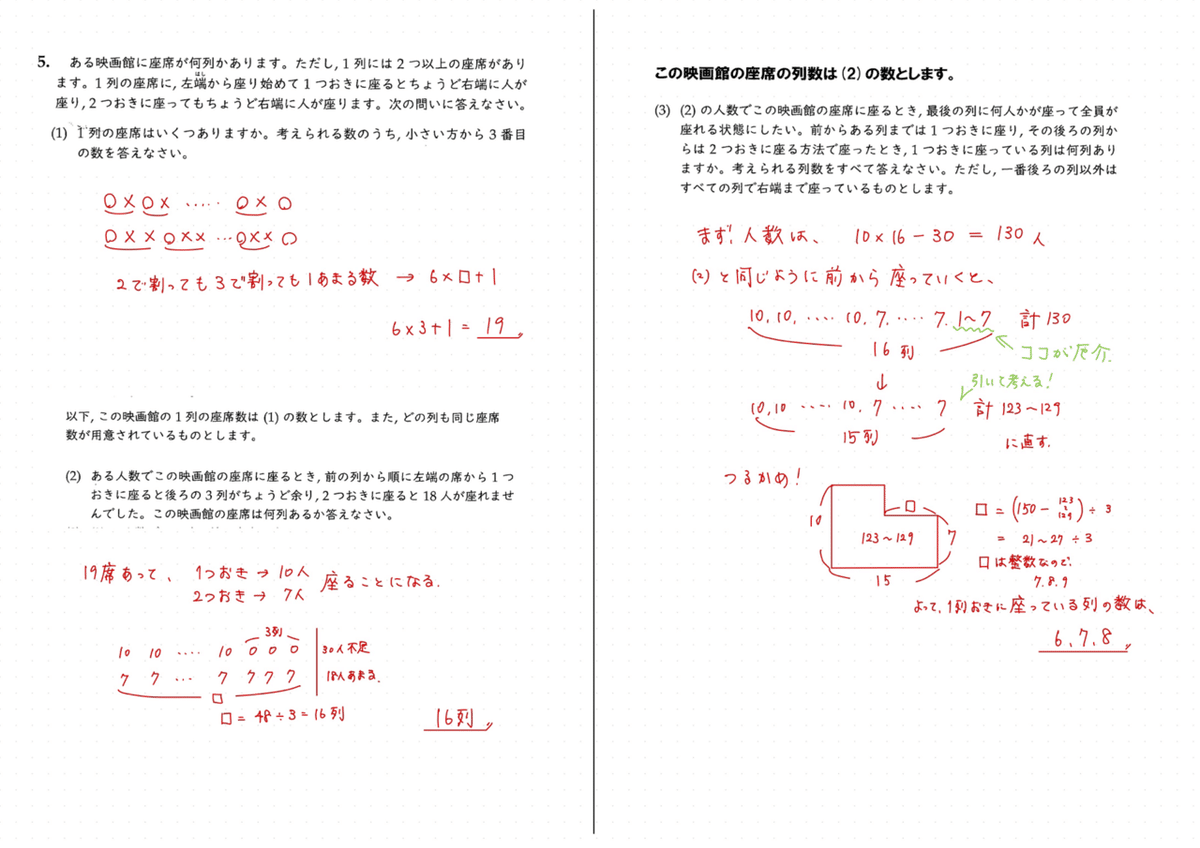 5. ある映画館に座席が何列かあります。ただし, 1列には2つ以上の座席があり
ます。1列の座席に, 左端から座り始めて1つおきに座るとちょうど右端に人が
はし
座り, 2つおきに座ってもちょうど右端に人が座ります。次の問いに答えなさい。
(1) 1列の座席はいくつありますか。考えられる数のうち, 小さい方から3番目
の数を答えなさい。
○×○× ····· ○×○
○××○×× ···○××○
2で割っても3で割っても1あまる数 → 6×□+1
6×3+1 = 19
以下, この映画館の1列の座席数は (1) の数とします。また, どの列も同じ座席
数が用意されているものとします。
(2) ある人数でこの映画館の座席に座るとき, 前の列から順に左端の席から1つ
おきに座ると後ろの3列がちょうど余り, 2つおきに座ると18人が座れませ
んでした。この映画館の座席は何列あるか答えなさい。
19席あって、 1つおき → 10人 座ることになる.
2つおき → 7人
3列
10 10 ···· 10 0 0 0 30人不足
7 7 ··· 7 7 7 7 18人あまる.
□
□ = 48÷3 = 16列
16列
この映画館の座席の列数は (2) の数とします。
(3) (2) の人数でこの映画館の座席に座るとき, 最後の列に何人かが座って全員が
座れる状態にしたい。前からある列までは1つおきに座り, その後ろの列か
らは2つおきに座る方法で座ったとき, 1つおきに座っている列は何列あり
ますか。考えられる列数をすべて答えなさい。ただし, 一番後ろの列以外は
すべての列で右端まで座っているものとします。
まず、人数は、 10×16－30 = 130人
(2)と同じように前から座っていくと、
10, 10, ···· 10, 7, ···· 7, 1~7 計130
16列
ココが厄介.
↓
引いて考える!
10, 10 ···· 10, 7 ···· 7 計123~129
15列
に直す.
つるかめ!
10 □ 7
123~129
15
□ = (150－123~129)÷3
= 21~27 ÷3
□は整数なので.
7.8.9
よって、1列おきに座っている列の数は、
6、7、8